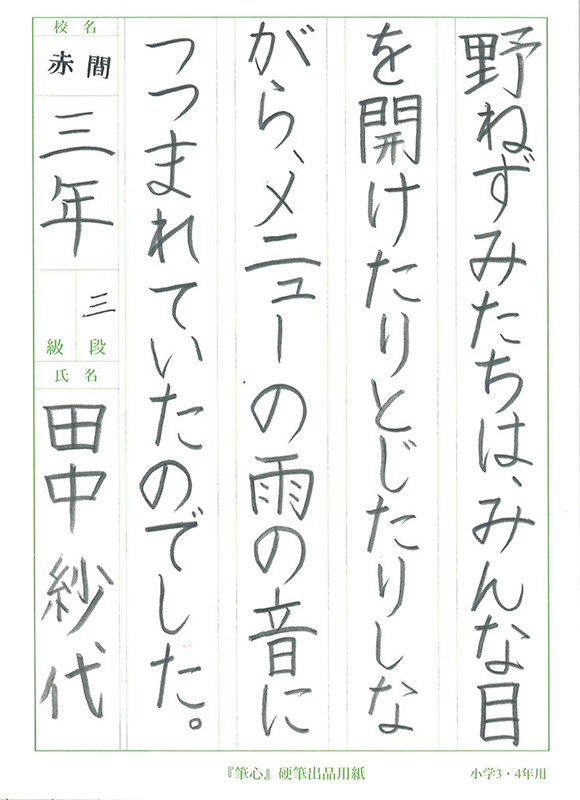 野ねずみたちは、みんな目
を開けたりとじたりしな
がら、メニューの雨の音に
つつまれていたのでした。
校名
赤間
三年
三
段
級
氏名
田中紗代
『筆心』硬筆出品用紙
小学3・4年用